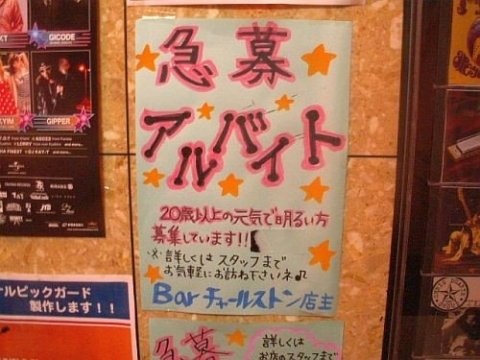 GICODE
GIPPER
急募
アルバイト
20歳以上の元気で明るい方
募集しています!!
※詳しくはスタッフまで
お気軽にお訪ね下さいネ♫
Bar チャールストン店主
ルピックガード
製作します!!
急募
詳しくは
お店のスタッフまで